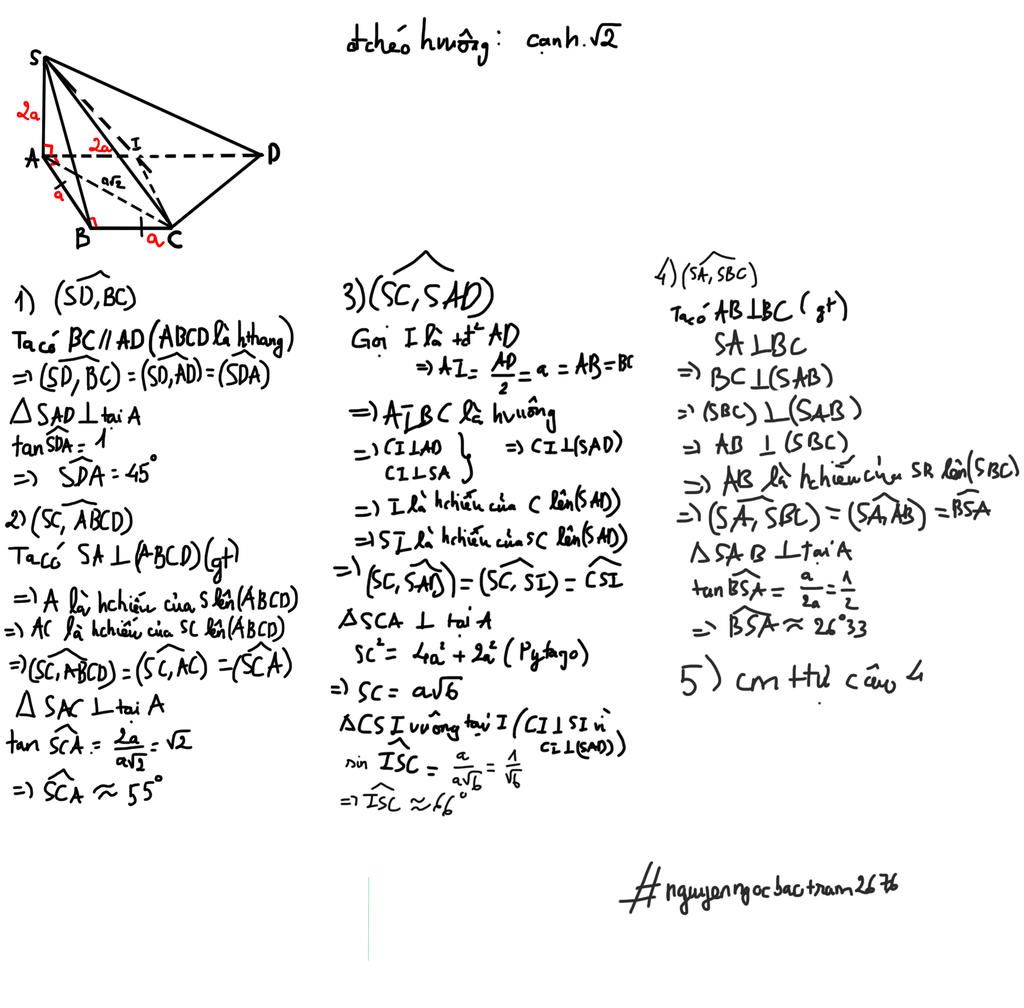 đchéo hvuông: cạnh.√2
S
2a
A
2a
I
D
a√2
a
B
a
C
1) (SD, BC)
Ta có BC // AD (ABCD là hthang)
=> (SD, BC) = (SD, AD) = (SDA)
Δ SAD ⊥ tại A
tan SDA = 1
=> SDA = 45°
2) (SC, ABCD)
Ta có SA ⊥ (ABCD) (gt)
=> A là hchiếu của S lên (ABCD)
=> AC là hchiếu của SC lên (ABCD)
=> (SC, ABCD) = (SC, AC) = (SCA)
Δ SAC ⊥ tại A
tan SCA = 2a/a√2 = √2
=> SCA ≈ 55°
3) (SC, SAD)
Gọi I là tđ² AD
=> AI = AD/2 = a = AB = BC
=> AIBC là hvuông
=> CI ⊥ AD } => CI ⊥ (SAD)
CI ⊥ SA
=> I là hchiếu của C lên (SAD)
=> SI là hchiếu của SC lên (SAD)
=> (SC, SAD) = (SC, SI) = CSI
Δ SCA ⊥ tại A
SC² = 4a² + 2a² (Pytago)
=> SC = a√6
Δ CSI vuông tại I (CI ⊥ SI vì
CI ⊥ (SAD))
sin ISC = a/a√6 = 1/√6
=> ISC ≈ 66°
4) (SA, SBC)
Ta có AB ⊥ BC (gt)
SA ⊥ BC
=> BC ⊥ (SAB)
=> (SBC) ⊥ (SAB)
=> AB ⊥ (SBC)
=> AB là hchiếu của SA lên (SBC)
=> (SA, SBC) = (SA, AB) = BSA
Δ SAB ⊥ tại A
tan BSA = a/2a = 1/2
=> BSA ≈ 26°33
5) cm ttự câu 4
#nguyenngocbactram2676